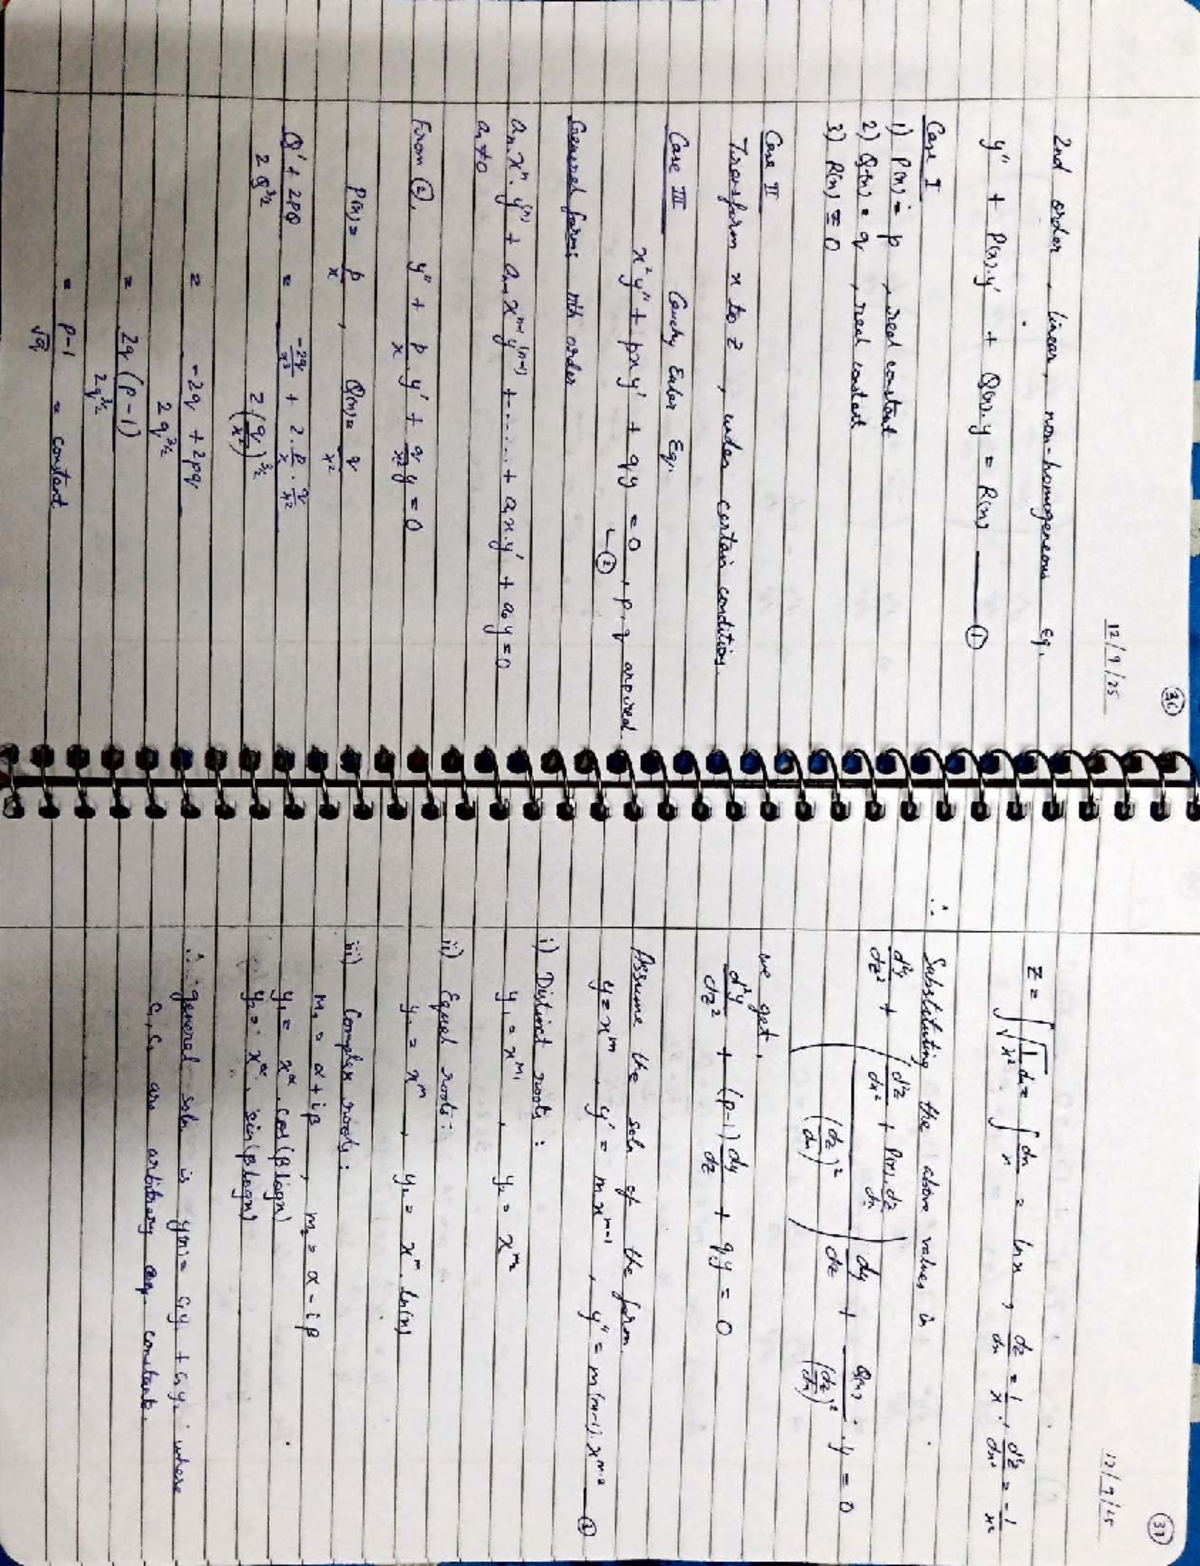 36
12/9/25
2nd order, linear, non-homogeneous eq.
y'' + P(x).y' + Q(x).y = R(x) —— ①
Case I
1) P(x) = p , real constant
2) Q(x) = q , real constant
3) R(x) ≡ 0
Case II
Transform x to z , under certain conditions.
Case III Cauchy Euler Eq.
x²y'' + pxy' + qy = 0 , p, q are real
②
General form: nth order
aₙ xⁿ. y⁽ⁿ⁾ + aₙ₋₁ xⁿ⁻¹ y⁽ⁿ⁻¹⁾ + ...... + a₁ x y' + a₀ y = 0
aₙ ≠ 0
From ②, y'' + p/x . y' + q/x² y = 0
P(x) = p/x , Q(x) = q/x²
(Q' + 2PQ) / (2 Q^(3/2)) = (-2q/x³ + 2. p/x . q/x²) / (2 (q/x²)^(3/2))
= (-2q + 2pq) / (2 q^(3/2))
= 2q (p-1) / (2q^(3/2))
= (p-1)/√q = constant
37
12/9/25
z = ∫ √(1/x²) dx = ∫ dx/x = ln x , dz/dx = 1/x , d²z/dx² = -1/x²
∴ Substituting the above values in
d²y/dz² + ( (d²z/dx² + P(x) dz/dx) / (dz/dx)² ) dy/dz + Q(x)/(dz/dx)² . y = 0
we get,
d²y/dz² + (p-1) dy/dz + q.y = 0
Assume the soln of the form
y = x^m , y' = m x^(m-1) , y'' = m(m-1).x^(m-2) — ③
i) Distinct roots:
y₁ = x^(m₁) , y₂ = x^(m₂)
ii) Equal roots:
y₁ = x^m , y₂ = x^m . ln(x)
iii) Complex roots:
m₁ = α + iβ , m₂ = α - iβ
y₁ = x^α . cos(β log x)
y₂ = x^α . sin(β log x)
∴ general soln is y(x) = c₁y₁ + c₂y₂ where
c₁, c₂ are arbitrary constants.